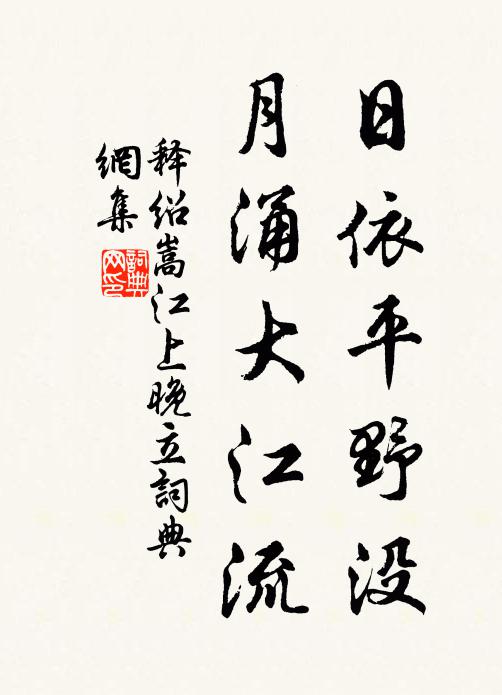 日依平野没
月涌大江流
释绍嵩江上晚立詞典
網集
詞典网印